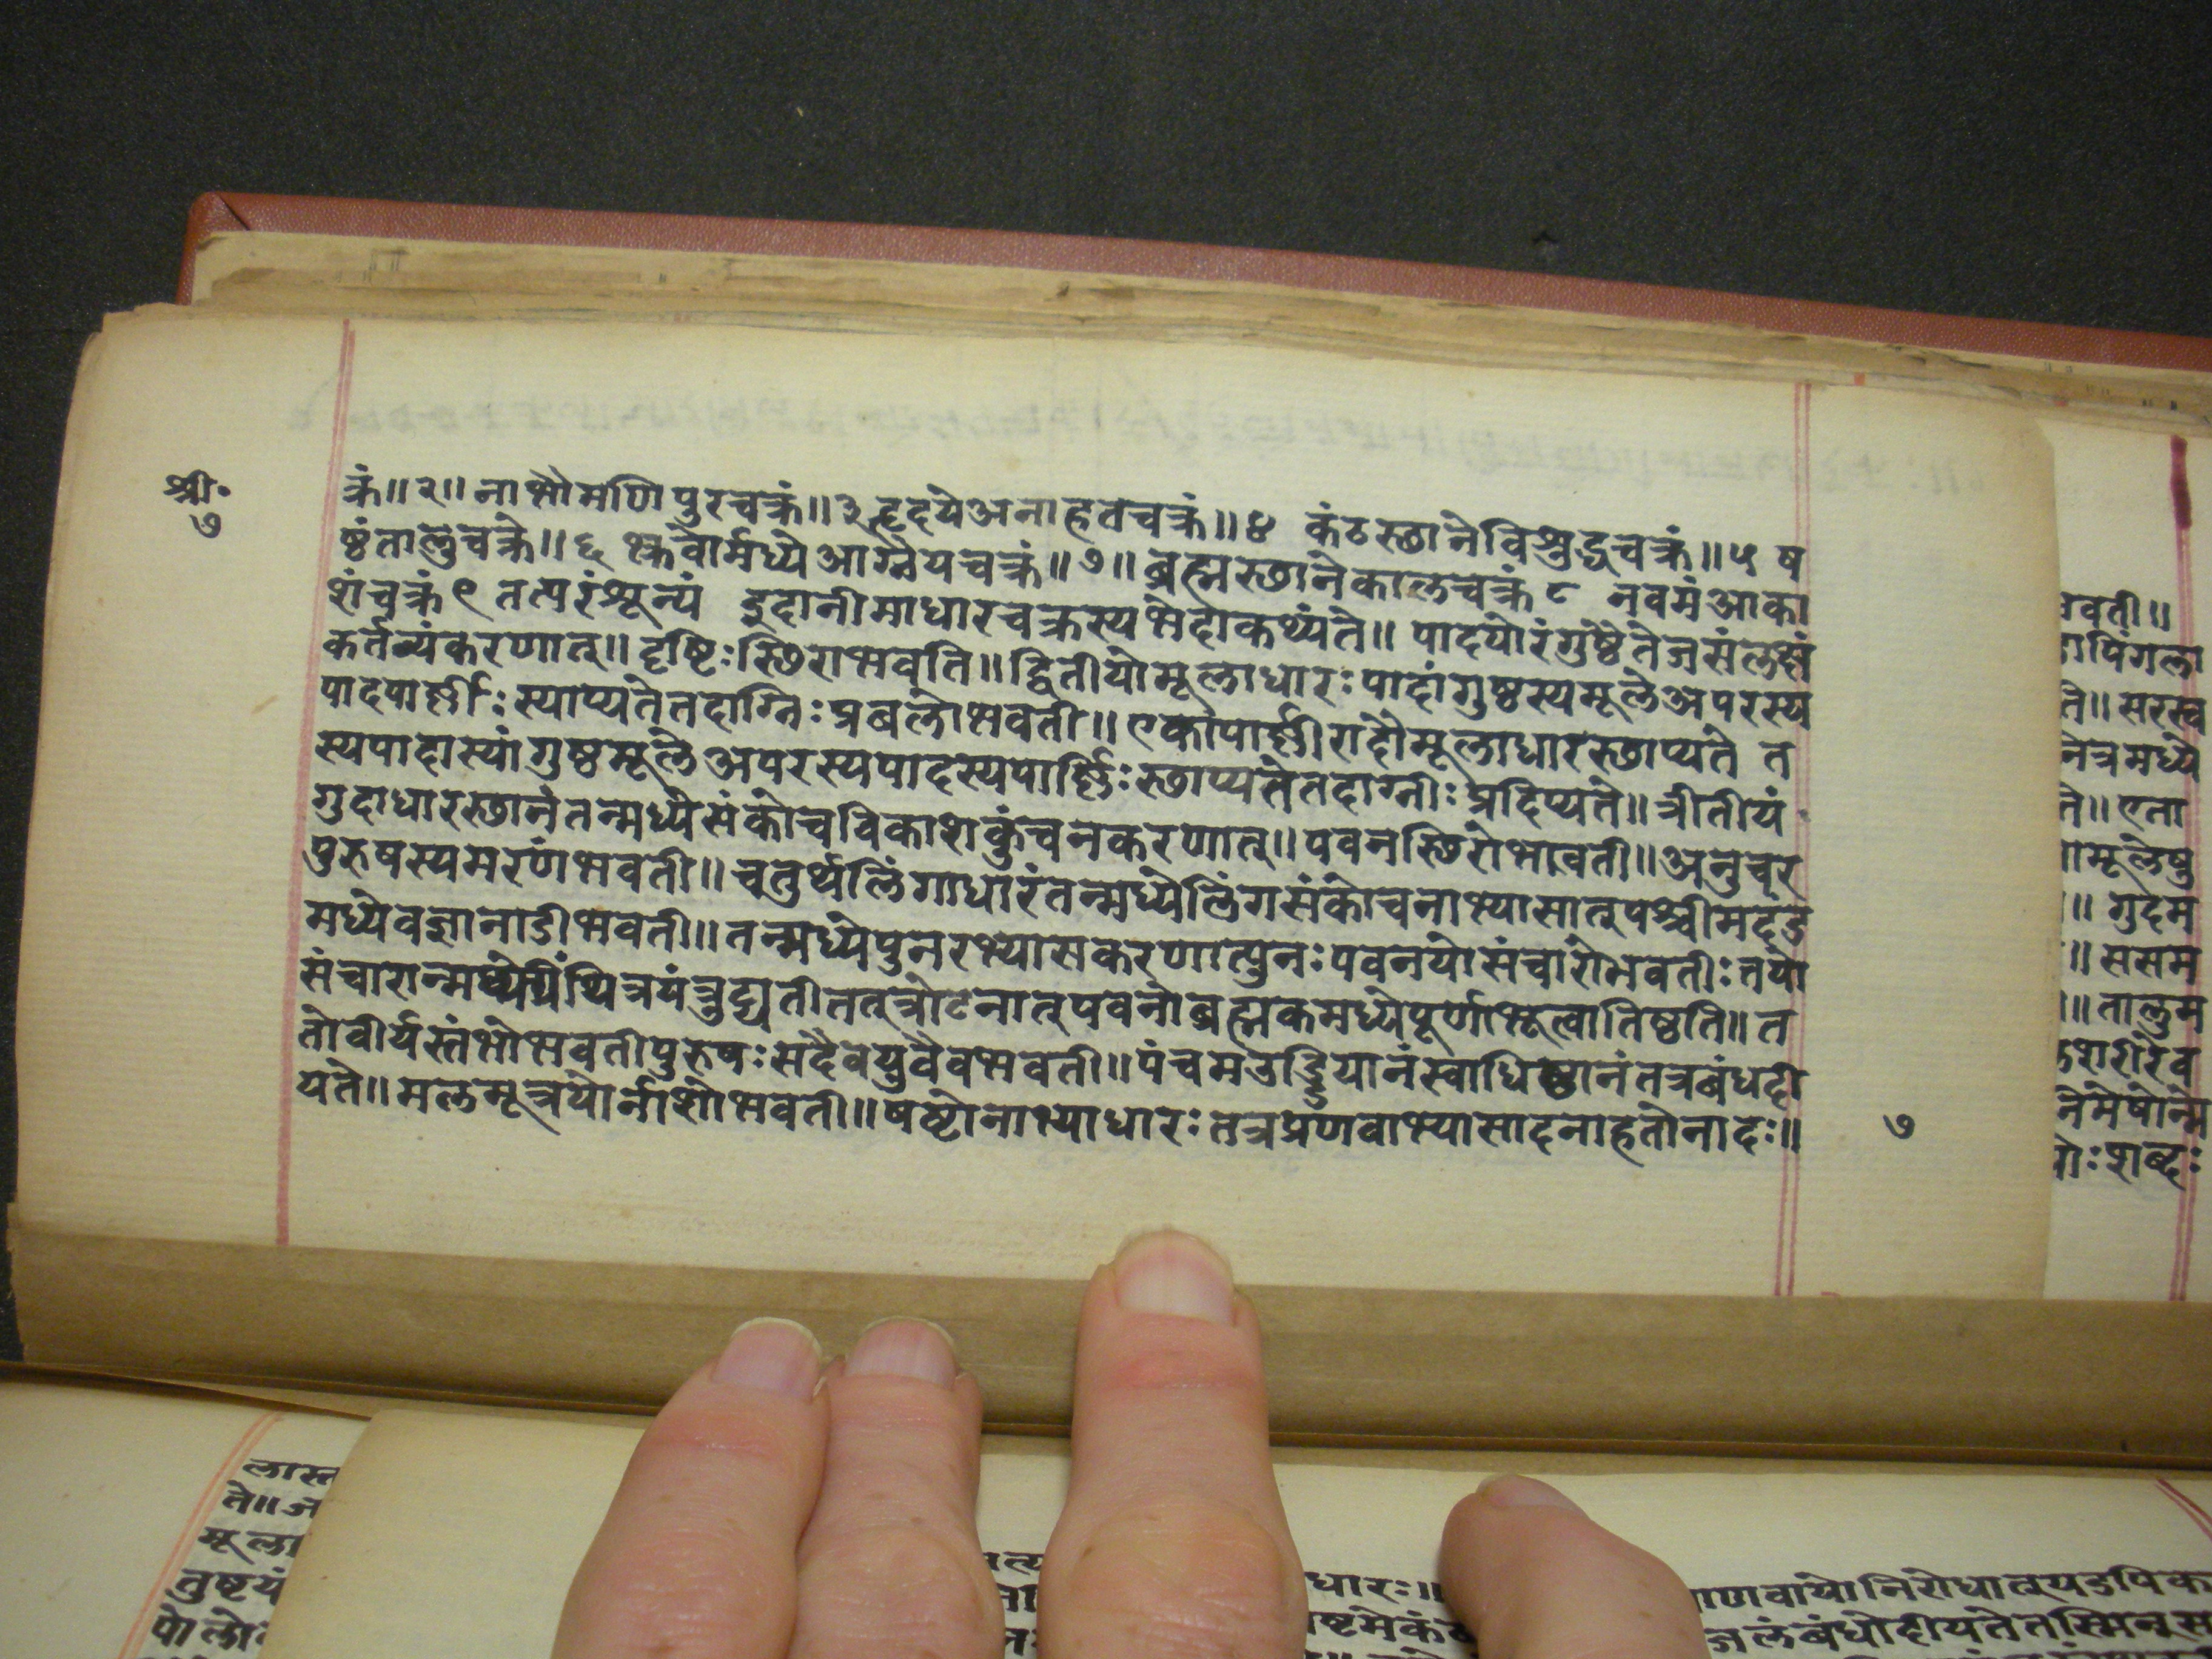 श्री॰
७
क्रं॥२॥ नाभौमणिपुरचक्रं॥३हृदयेअनाहतचक्रं॥४ कंठस्छानेविशुद्धचक्रं॥५ ष
ष्ठंतालुचक्रं॥६ भ्रुवोर्मध्येआग्नेयचक्रं॥७॥ ब्रह्मस्छानेकालचक्रं ८ नवमंआका
शंचक्रं९ तत्परंशून्यं इदानीमाधारचक्रस्यभेदाकथ्यंते॥ पादयोरंगुष्ठेतेजसंलक्षं
कर्तव्यंकरणात्॥ दृष्टिःस्छिराभवति॥ द्वितीयोमूलाधारःपादांगुष्ठस्यमूलेअपरस्य
पादपार्ष्णीःस्याप्यतेतदाग्निःप्रबलोभवती॥ एकोपार्ष्णीरादौमूलाधारस्छाप्यते त
स्यपादास्यांगुष्ठमूलेअपरस्यपादस्यपार्ष्णिःस्छाप्यतेतदाग्नीःप्रदिप्यते॥ त्रीतीयं
गुदाधारस्छानंतन्मध्येसंकोचविकाशकुंचनकरणात्॥ पवनस्छिरोभावती॥अनुचर
पुरुषस्यमरणंभवती॥ चतुर्थलिंगाधारंतन्मध्येलिंगसंकोचनाभ्यासात्पश्चीमदंड
मध्येवज्ञानाडीभवती॥ तन्मध्येपुनरभ्यासकरणात्पुनःपवनयोसंचारोभवतीःतयो
संचारान्मध्येग्रंथित्रयंत्रुट्यतीततत्रोटनात्पवनोब्रह्मकमध्येपूर्णोभूत्वातिष्ठति॥ त
तोवीर्यस्तंभोभवतीपुरुषःसदैवयुवैवभवती॥ पंचमउड्डियानंस्वाधिष्ठानंतत्रबंधदी
यते॥ मलमूत्रयोर्नाशोभवती॥ षष्टोनाभ्याधारःतत्रप्रणवाभ्यासादनाहतोनादः॥
७
वती॥
पिंगला
ते॥ सरस्व
नेत्रमध्ये
ते॥ एता
मूलेषु
॥ गुदम
॥ ससम
॥ तालुम
शरीरेव
नेमेषोन्म
ःशब्दः
लास्त
ते॥ अ
मूला
तुष्टयं
धारः॥ णवायोनिरोधात्
ष्टमेकं लंबंधोदीयतेतस्मिन्स